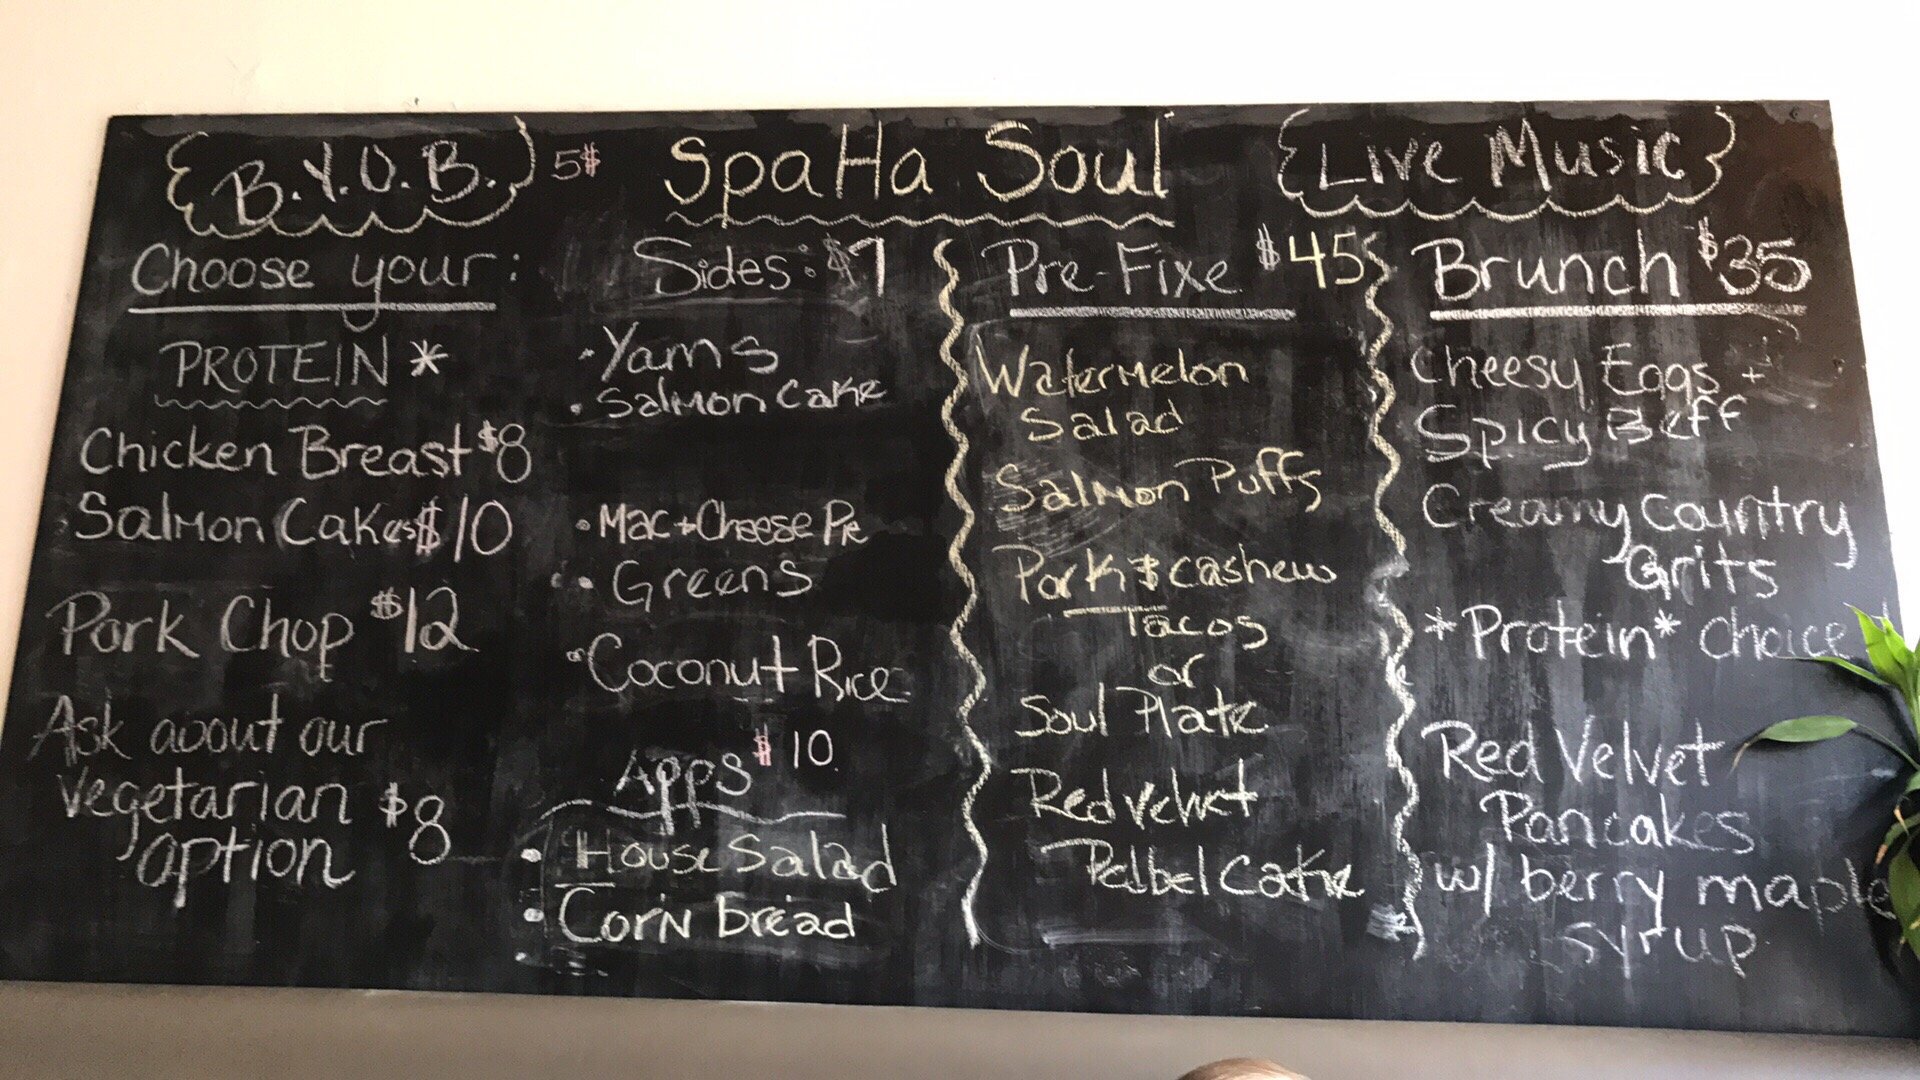 B.Y.O.B. 5$
SpaHa Soul
Live Music
Choose your:
PROTEIN *
Chicken Breast $8
Salmon Cakes $10
Pork Chop $12
Ask about our
vegetarian $8
option
Sides: $7
• Yams
• Salmon Cake
• Mac + Cheese Pie
• Greens
• Coconut Rice
Apps $10
• House Salad
• Corn bread
Pre-Fixe $45
Watermelon
Salad
Salmon Puffs
Pork & cashew
Tacos
or
Soul Plate
Red Velvet
Cake
Brunch $35
Cheesy Eggs +
Spicy Beff
Creamy Country
Grits
*Protein* choice
Red Velvet
Pancakes
w/ berry maple
syrup